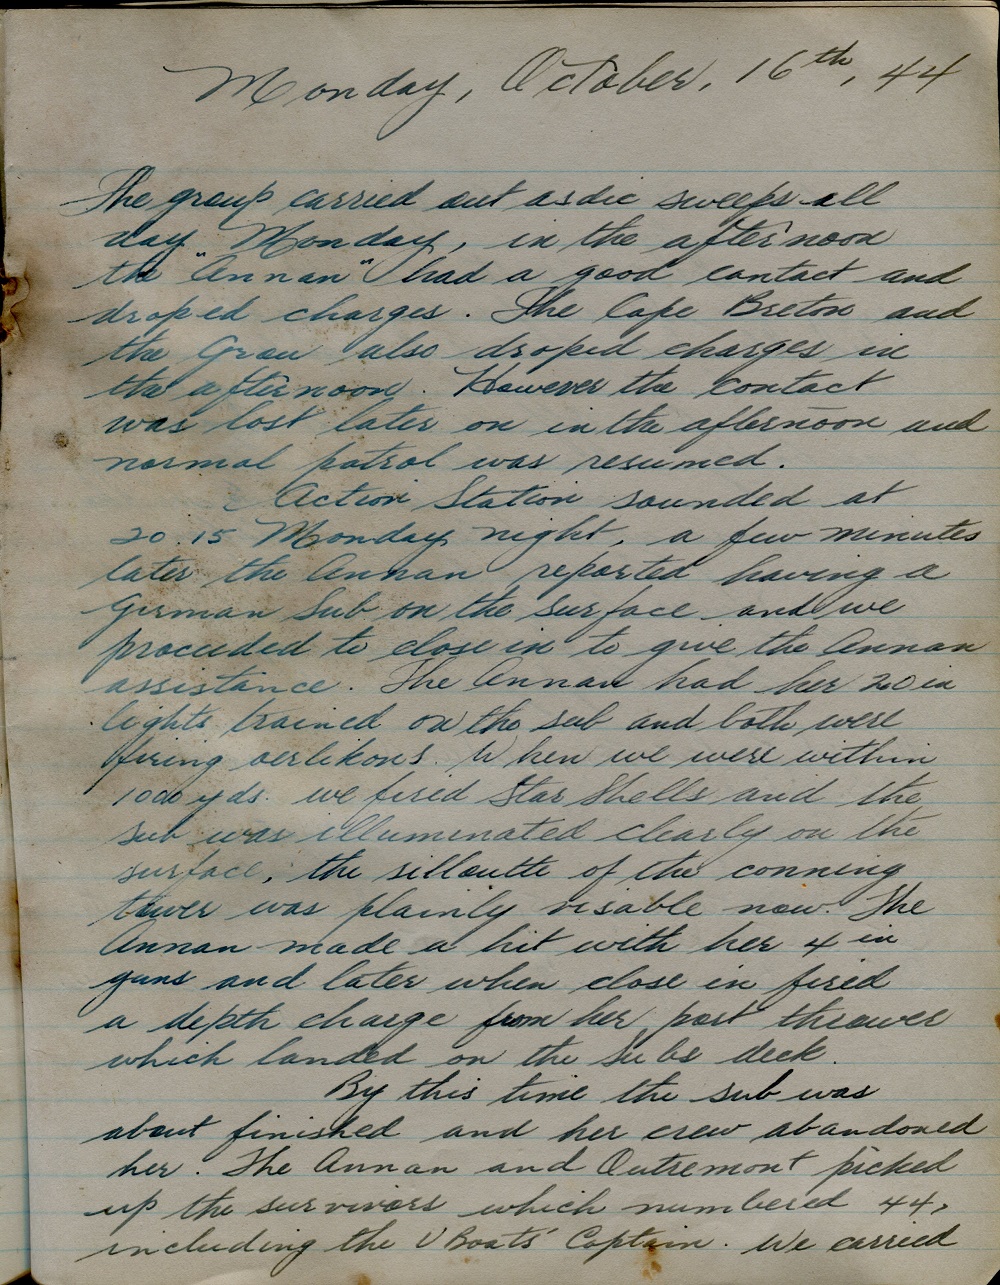 Monday, October, 16th, 44
The group carried out asdic sweeps all
day Monday, in the afternoon
the "Annan" had a good contact and
droped charges. The Cape Breton and
the Grou also droped charges in
the afternoon. However the contact
was lost later on in the afternoon and
normal patrol was resumed.
Action Station sounded at
20.15 Monday night, a few minutes
later the Annan reported having a
German Sub on the surface and we
proceeded to close in to give the Annan
assistance. The Annan had her 20 in
lights trained on the sub and both were
firing oerlikons. When we were within
1000 yds. we fired Star Shells and the
sub was illuminated clearly on the
surface, the silloutte of the conning
tower was plainly visable now. The
Annan made a hit with her 4 in
guns and later when close in fired
a depth charge from her port thrower
which landed on the subs deck.
By this time the sub was
about finished and her crew abandoned
her. The Annan and Outremont picked
up the survivors which numbered 44,
including the U Boats' Captain. We carried